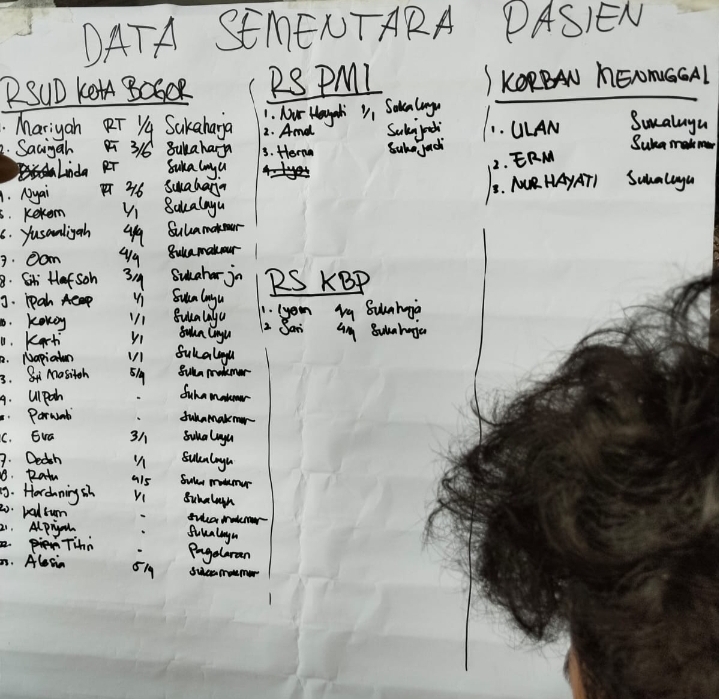 DATA SEMENTARA PASIEN
RSUD KOTA BOGOR
Mariyah RT 1/4 Sukaharja
2. RT 3/6 Sukaharja
Linda RT Sukaluyu
4. Nyai RT 2/6 Sukaharja
5. Kokom 1/1 Sukaluyu
6. Yusnaliyah 4/9 Sukamakmur
7. Oom 4/9 Sukamakmur
8. Siti Hafsoh 3/9 Sukaharja
9. Ipah Acep 1/1 Sukaluyu
10. Kokoy 1/1 Sukaluyu
11. Karti 1/1 Sukaluyu
2. Napiatun 1/1 Sukaluyu
3. Siti Masitoh 5/9 Sukamakmur
4. Ulpah - Sukamakmur
Parwati - Sukamakmur
6. Eva 3/1 Sukaluyu
7. Dedeh 1/1 Sukaluyu
8. Ratu 4/5 Sukamakmur
9. 1/1 Sukaluyu
20. Kulsum - Sukamakmur
21. Alpiyah - Sukaluyu
22. Titin - Pagelaran
23. Alesia 5/9 Sukamakmur
RS PMI
1. Nur Hayati 1/1 Sukaluyu
2. Amel Sukajadi
3. Herna Sukajadi
4.
RS KBP
1. Iyom 4/9 Sukaharja
2 Sari 4/9 Sukaharja
KORBAN MENINGGAL
1. ULAN Sukaluyu
2. ERM Sukamakmur
3. NURHAYATI Sukaluyu